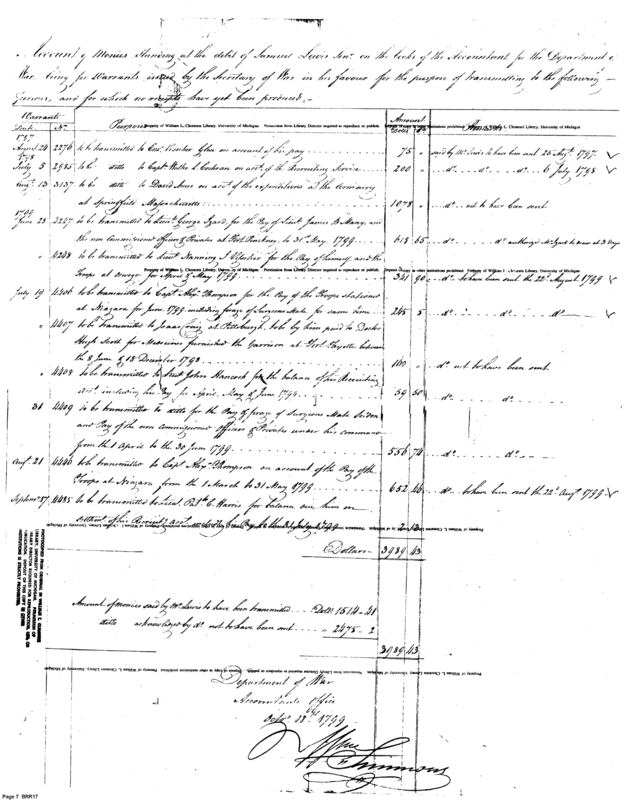 Account of Monies standing at the debit of Samuel Lewis Senr. on the books of the Accountant for the Department of
War being for Warrants issued by the Secretary of War in his favour for the purpose of transmitting to the following
persons, and for which no receipts have yet been produced.
Warrants
Date No. Purpose Amount Dolls Cts Remarks
Property of William L. Clements Library, University of Michigan Permission from Library Director required to reproduce or publish.
1797
August 24 2276 to be transmitted to on account of his pay 75 " said by Mr. Lewis to have been sent 25 Augt. 1797
1798
July 5 2985 to be ditto to Capt. Walter L Cochran on acct. of the Recruiting Service 200 " do. do. do. 6 July 1798
Augt. 13 3137 to be ditto to David Ames on acct. of the expenditures at the Armoury
at Springfield Massachusetts 1078 " do. not to have been sent
1799
June 23 to be transmitted to Lieut. George Izard for the Pay of Lieut James B. Many, and
the non Commissioned officers & Privates at Fort Pinckney, to 31st. May 1799 618 65 do. do.
" 4268 to be transmitted to Lieut for the Pay of himself and the
Troops at Oswego for April & May 1799 341 90 do. to have been sent the 22d. August 1799
July 19 4406 to be transmitted to Capt. Alexr. Thompson for the Pay of the Troops stationed
at Niagara for June 1799 including forage of Surgeons Mate for same time 265 5 do. do. do.
" 4407 to be transmitted to Isaac Craig at Pittsburgh, to be by him paid to Doctor
Hugh Scott for Medicines furnished the Garrison at Fort Fayette between
the 8 June & 18 December 1798 100 " do. not to have been sent
" 4408 to be transmitted to Lieut John Hancock for the balance of his Recruiting
acct. including his Pay for April, May & June 1799 39 50 do. do.
31 4409 to be transmitted to ditto for the Pay & forage of Surgeons Mate
and Pay of the non commissioned Officers & Privates under his command
from the 1 April to the 30 June 1799 556 74 do. do.
Augt. 21 4446 to be transmitted to Capt. Alexr. Thompson on account of the Pay of the
Troops at Niagara from the 1 March to 31 May 1799 652 46 do. to have been sent the 22d. Augt. 1799
4485 to be transmitted to Lieut. C. Harris for balance due him on
settlement of his Recruitg. acct. 2 13
Dollars 3989 43
Amount of monies said by Mr. Lewis to have been transmitted Dolls. 1514 - 41
ditto acknowledged by do. not to have been sent " 2475 - 2
3989 43
Department of War
Accountants Office
Octor. 1799
Wm Simmons
Page 7 BRR17